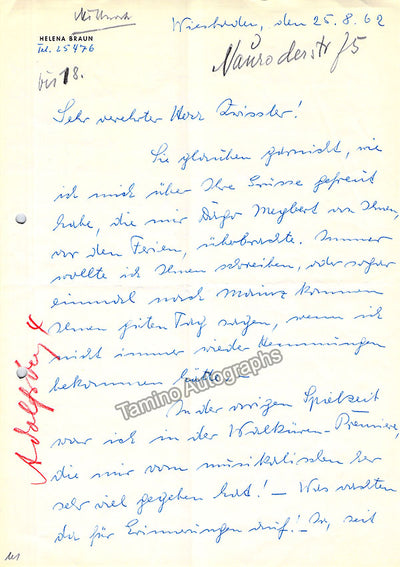 Mittwoch
HELENA BRAUN
Tel. 25476
Wiesbaden, den 25.8.62
Nauroderstr 75
bis 18.
Sehr verehrter Herr Zwissler!
Sie glauben garnicht, wie
ich mich über Ihre Grüsse gefreut
habe, die mir Megbert von Ihnen,
vor den Ferien, überbrachte. Immer
wollte ich Ihnen schreiben, oder sogar
einmal nach Mainz kommen
Ihnen guten Tag sagen, wenn ich
nicht immer wieder Hemmungen
bekommen hätte. –
Tamino Autographs
In der vorigen Spielzeit
war ich in der Walküren-Premiere,
die mir vom musikalischen her
sehr viel gegeben hat! – Was wachten
da für Erinnerungen auf! Ja, seit
Adolfsberg 4